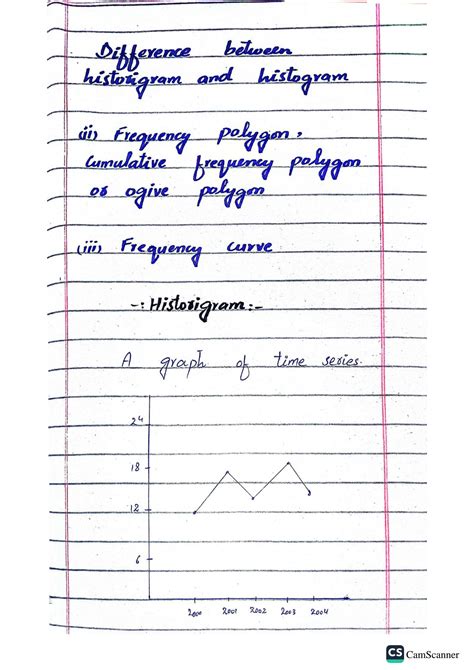 Difference between
historigram and histogram
(ii) Frequency polygon,
Cumulative frequency polygon
or ogive polygon
(iii) Frequency curve
-: Historigram:-
A graph of time series.
24
18
12
6
2000 2001 2002 2003 2004
CS CamScanner